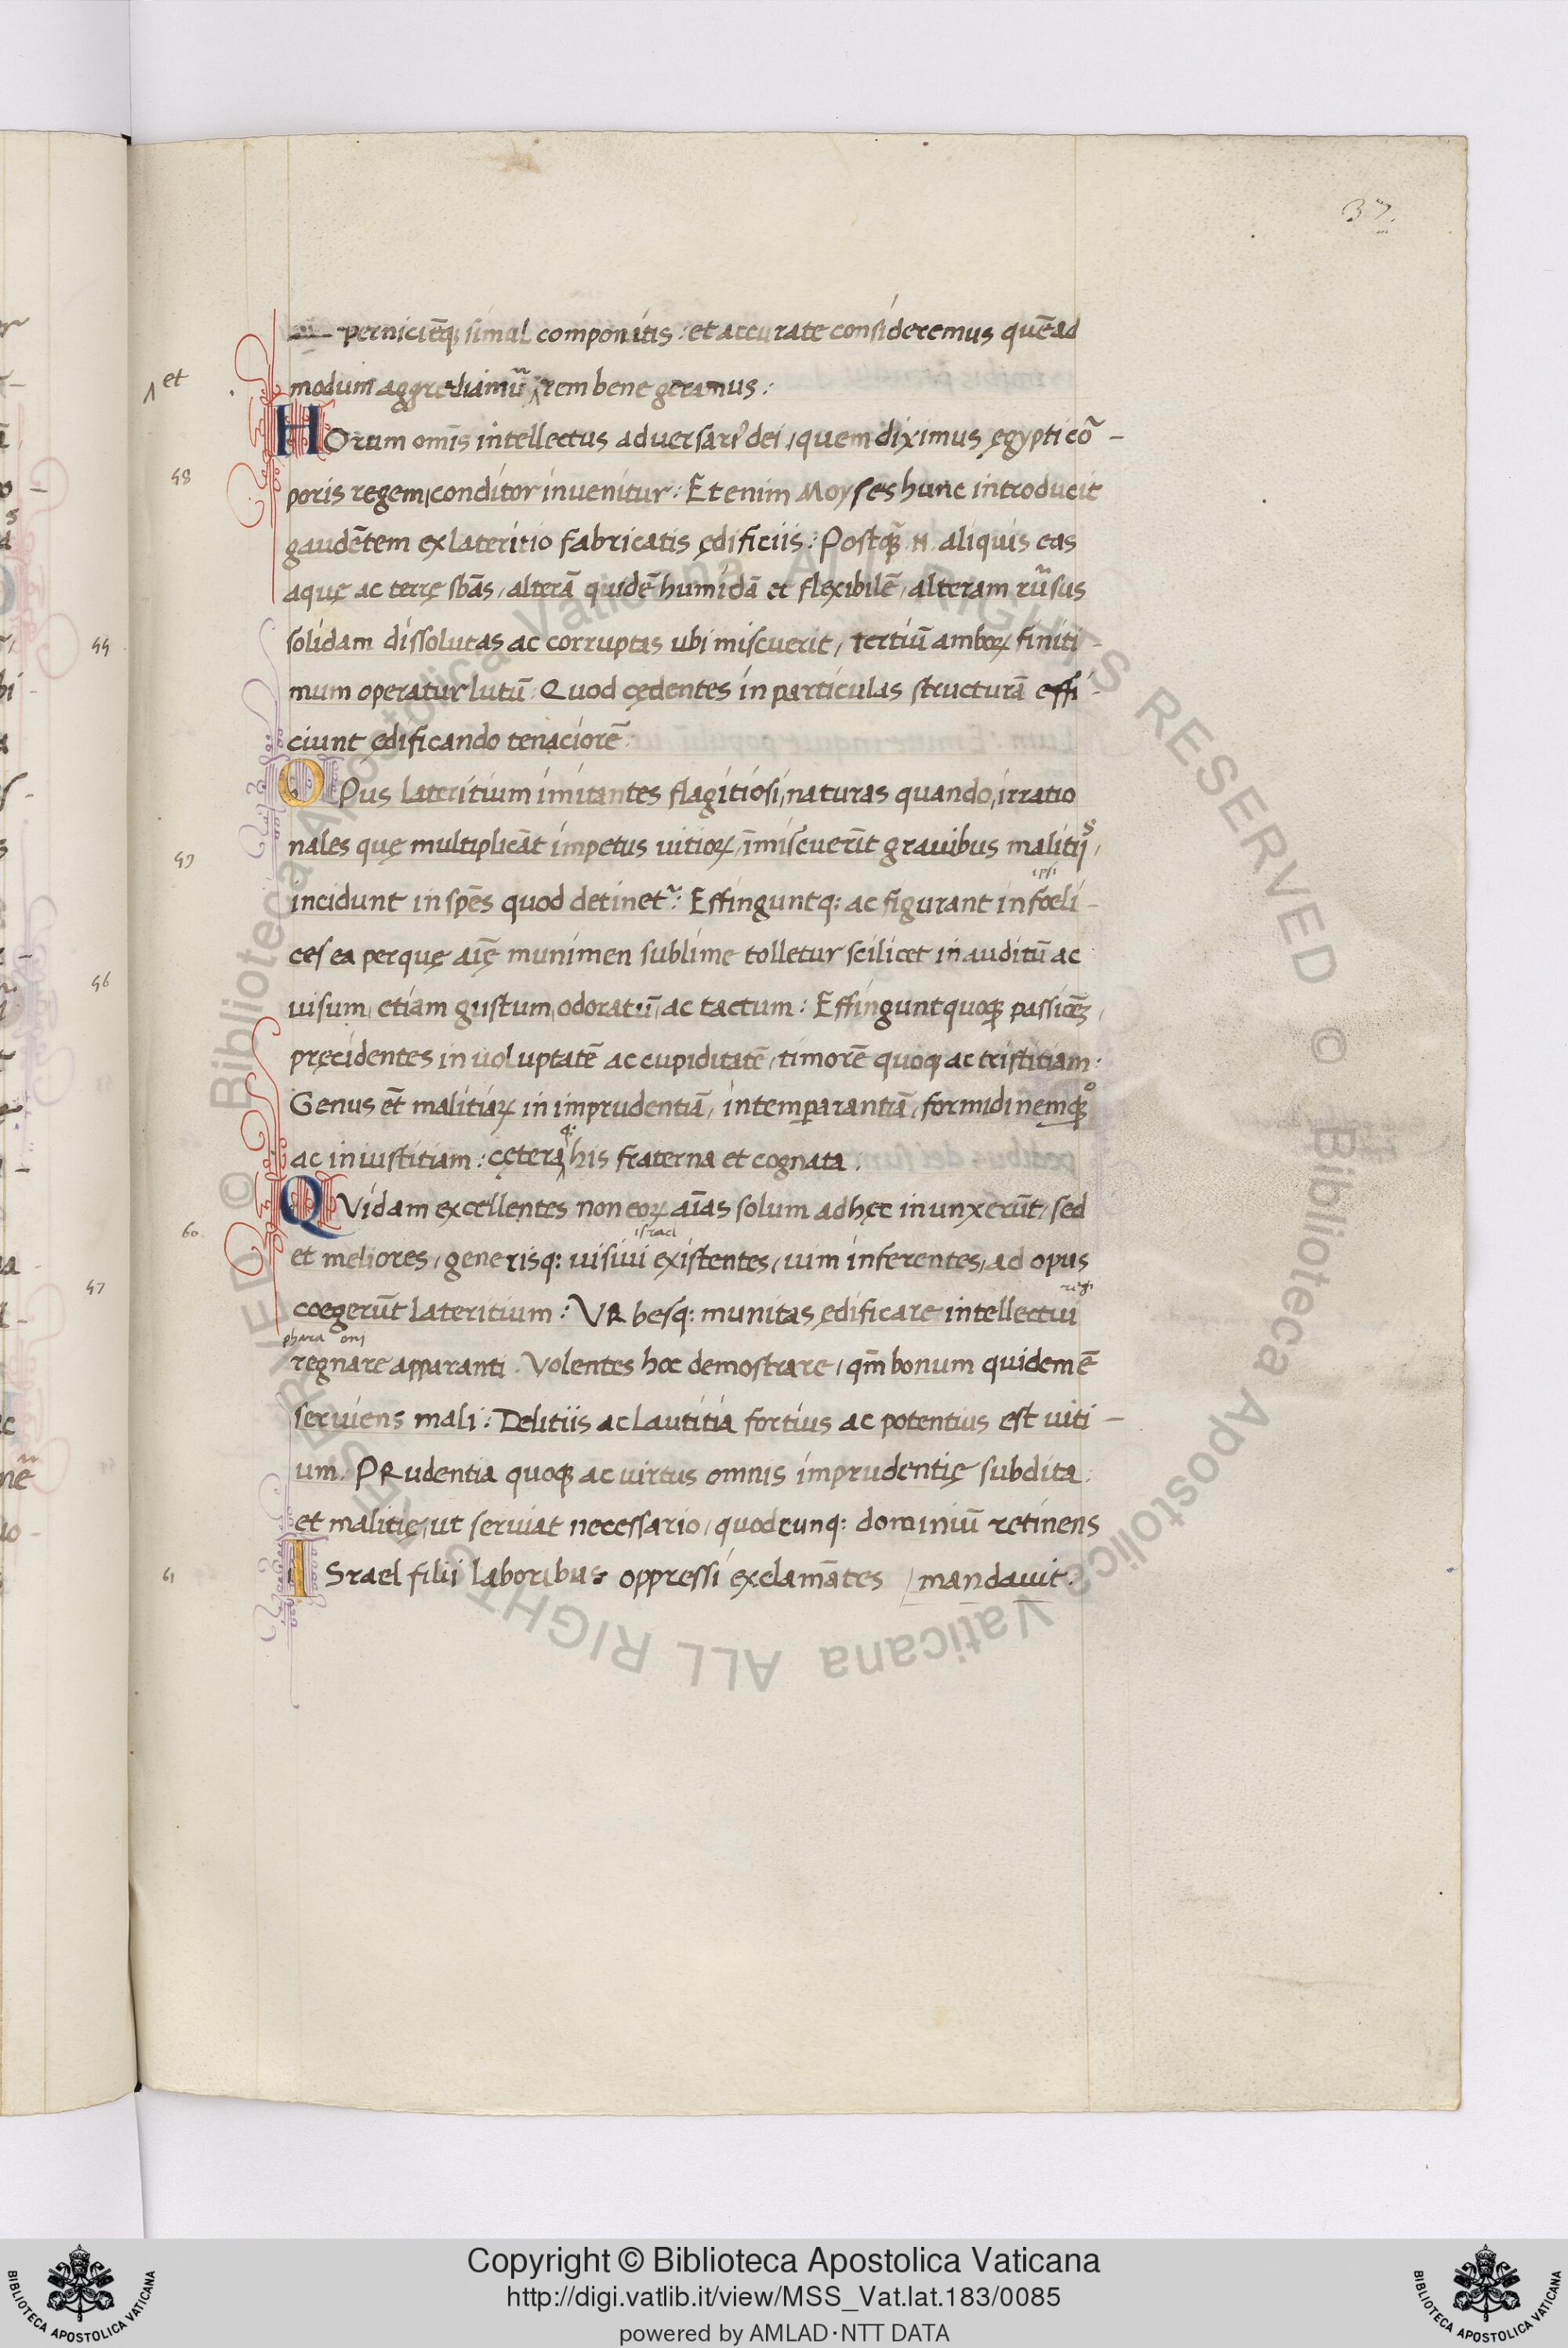 37.
perniciēq; simul componitis: et accurate consideremus quēad
et
modum aggrediamur̃ rem bene geramus:
HOrum om̄is intellectus adversarȷ dei, quem diximus ęgypti cō-
58
poris regem, conditor invenitur: Etenim Moyses hunc introducit
gaudētem ex lateritio fabricatis ędificiis: Postꝙ̄ .N. aliquis eas
aquę ac terrę sbās, alterā quidē humidā et flexibilē, alteram rūsus
solidam dissolutas ac corruptas ubi miscuerit, tertiū amboꝝ finiti-
mum operatur lutū: Quod cędentes in particulas structurā effi-
ciunt ędificando tenaciorē:
OPus lateritium imitantes flagitiosi, naturas quando, irratio
59
nales quę multiplicāt impetus vitioꝝ, īmiscuerīt gravibus malitijs,
ipsi
incidunt in spēs quod detinetr̃: Effinguntq: ac figurant infoeli-
ces ea per quę aīę munimen sublime tolletur scilicet in auditū ac
visum, etiam gustum, odoratū, ac tactum: Effingunt quoqꝫ passiōes,
pręcidentes in voluptatē ac cupiditatē, timorē quoq ac tristitiam:
Genus et̄ malitiaꝝ in imprudentiā, intemꝑarantiā, formidinemqꝫ
q:
ac iniustitiam: cętera his fraterna et cognata.
QVidam excellentes non eoꝝ aīas solum ad hęc inunxerūt, sed
60
israel
et meliores, generisq: visivi existentes, vim inferentes, ad opus
regi
coegerūt lateritium: VRbesq: munitas ędificare intellectui
pharaoni
regnare apparanti. Volentes hoc demostrare, qm̄ bonum quidem ē
serviens mali: Delitiis ac lautitia fortius ac potentius est viti-
um. PRudentia quoqꝫ ac virtus omnis imprudentię subdita
et malitię, ut serviat necessario, quodcunq: dominiū retinens
61
ISrael filii laboribus oppressi exclamātes / mandavit.
55
56
57
Copyright © Biblioteca Apostolica Vaticana
http://digi.vatlib.it/view/MSS_Vat.lat.183/0085
powered by AMLAD·NTT DATA
BIBLIOTECA APOSTOLICA VATICANA
BIBLIOTECA APOSTOLICA VATICANA
© Biblioteca Apostolica Vaticana ALL RIGHTS RESERVED © Biblioteca Apostolica Vaticana ALL RIGHTS RESERVED